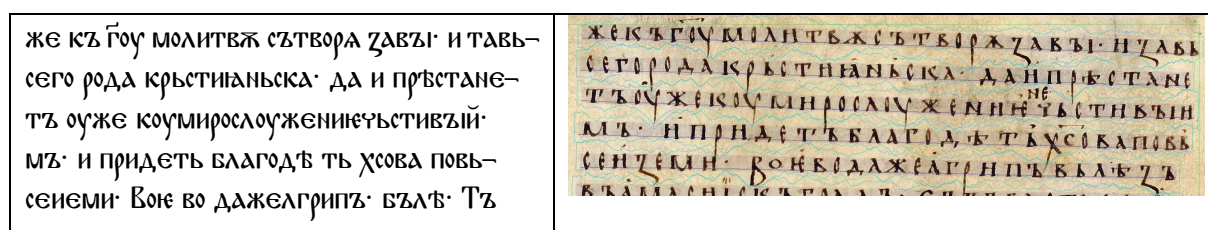 же къ г҃оу молитвѫ сътворѧ ꙁавꙑ· и тавь¬
сего рода крьстиꙗньска· да и прѣстане¬
тъ оуже коумирослоужениѥчьстивꙑй·
мъ· и придеть благодѣ ть хсова повь¬
сеиеми· Воѥ во дажелгрипъ· бълѣ· Тъ
жекъг҃оумолитвѫсътворѧꙁавꙑ· иꙁавь
сегородакрьстиꙗньска· даипрѣстане
не
тъоужекоумирослоужениѥчьстивꙑи
мъ· ипридетъблагодѣтьх҃соваповь
сеиꙁеми· воѥводажеагрипъвълѣꙁъ